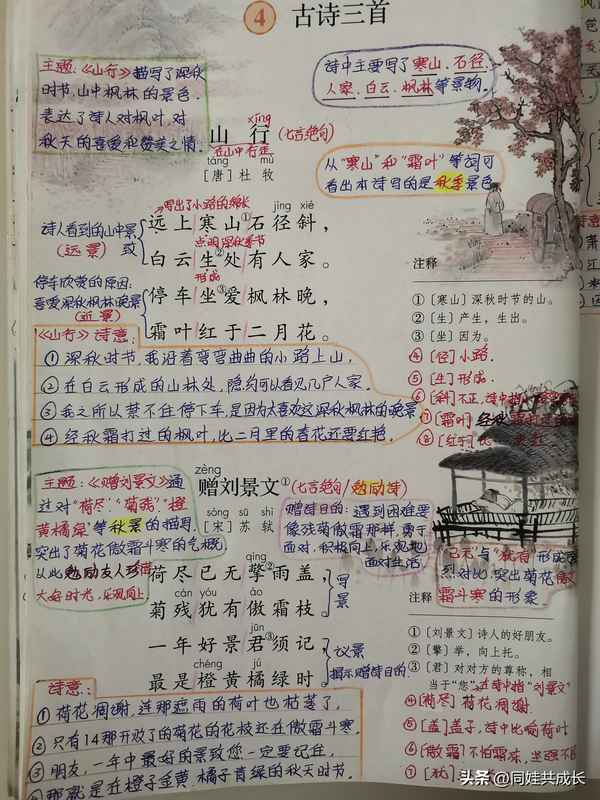 4 古诗三首
主题:《山行》描写了深秋
时节,山中枫林的景色.
表达了诗人对枫叶、对
秋天的喜爱和赞美之情.
诗中主要写了寒山、石径、
人家、白云、枫林等景物。
xíng
山 行 (七言绝句)
在山中行走
táng mù
[唐] 杜 牧
从“寒山”和“霜叶”等词可
看出本诗写的是秋季景色
写出了小路的绵长
jìng xié
远上寒山①石径斜,
点明深秋季节
白云生②处有人家。
形成
诗人看到的山中景
(远景) 或
停车坐③爱枫林晚,
霜叶红于二月花。
停车欣赏的原因:
喜爱深秋枫林晚景
(近景)
注释
①〔寒山〕深秋时节的山。
②〔生〕产生,生出。
③〔坐〕因为。
④〔径〕小路.
⑤〔生〕形成.
⑥〔斜〕不正,诗中指
⑦〔霜叶〕经秋
《山行》诗意:
①深秋时节,我沿着弯弯曲曲的小路上山,
②在白云形成的山林处,隐约可以看见几户人家.
③我之所以禁不住停下车,是因为太喜欢这深秋枫林的晚景
④经秋霜打过的枫叶,比二月里的春花还要红艳.
zèng
赠刘景文① (七言绝句/勉励诗)
sòng sū shì
[宋] 苏 轼
主题:《赠刘景文》通
过对“荷尽”、“菊残”、“橙
黄橘绿”等秋景的描写,
突出了菊花傲霜斗寒的气概,
以此勉励友人珍惜
大好时光,乐观向上
赠诗目的:遇到困难要
像残菊傲霜那样,勇于
面对,积极向上,乐观地
面对生活
qíng
荷尽已无擎②雨盖,
cán yóu ào
菊残犹有傲霜枝。
写景
jūn
一年好景君③须记,
chéng jú
最是橙黄橘绿时。
议景
揭示赠诗目的.
“已无”与“犹有”形成
烈对比,突出菊花傲
霜斗寒的形象
注释
①〔刘景文〕诗人的好朋友。
②〔擎〕举,向上托。
③〔君〕对对方的尊称,相
当于“您”.在诗中指“刘景文”
④〔荷尽〕荷花凋谢.
⑤〔盖〕盖子,诗中比喻荷叶
⑥〔傲霜〕不怕霜冻,坚强不
⑦〔犹〕
诗意:
①荷花凋谢,连那遮雨的荷叶也枯萎了,
②只有那开败了的菊花的花枝还在傲霜斗寒.
③朋友,一年中最好的景致您一定要记住,
④那就是在橙子金黄、橘子青绿的秋天时节.
头条 @同娃共成长